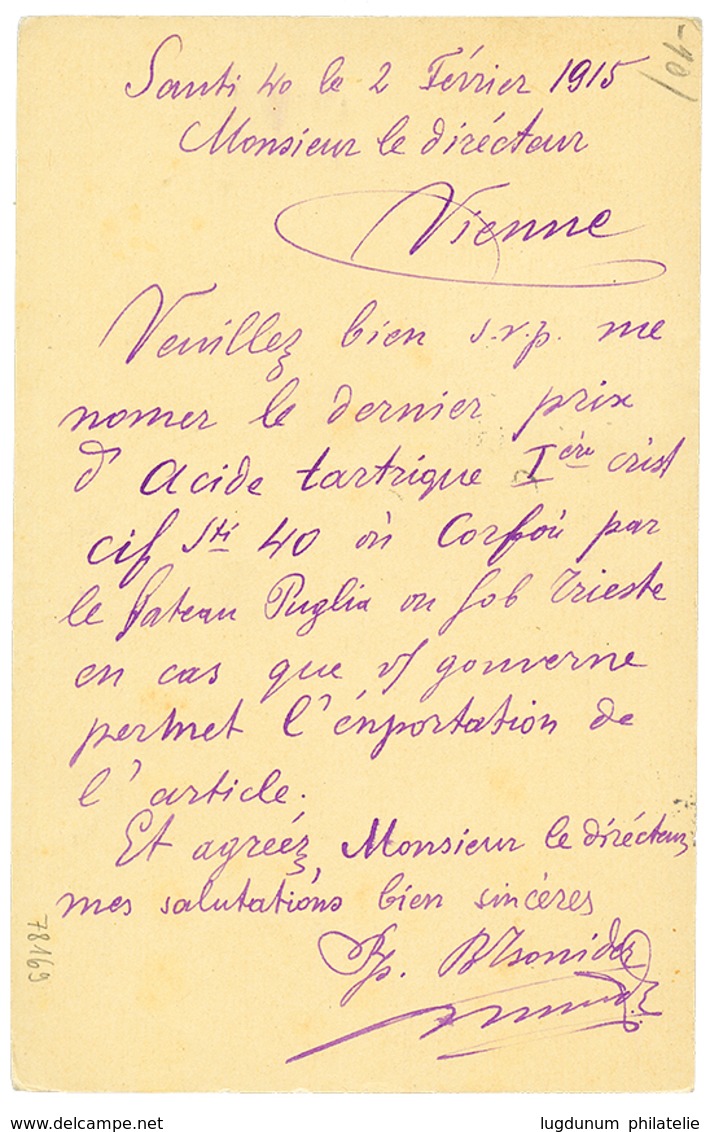 Santi 40 le 2 Février 1915
Monsieur le dirécteur
Vienne
Veuillez bien s.v.p. me
nomer le dernier prix
d' Acide tartrique Ière crist
cif Sti 40 où Corfoù par
le bateau Puglia ou fob Trieste
en cas que v/ gouverne
permet l'énportation de
l'article.
Et agreéz, Monsieur le dirécteur,
mes salutations bien sincéres
78169
delcampe.net
lugdunum philatelie